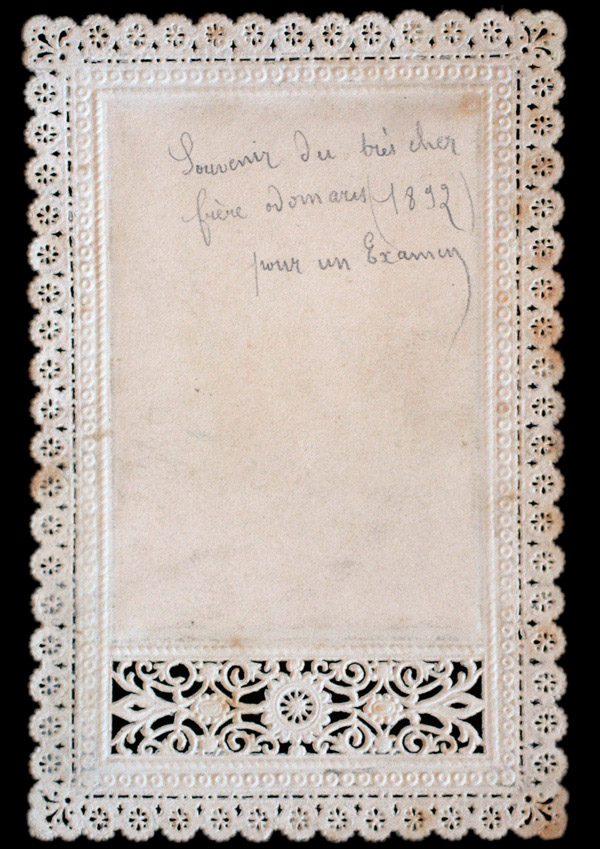 Souvenir du très cher
frère odomaris (1892)
pour un Examen